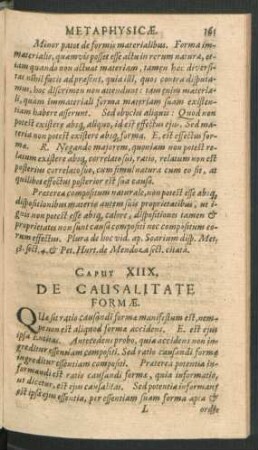 METAPHYSICÆ. 161
Minor patet de formis materialibus. Forma im-
materialis, quamvis posset esse actu in rerum natura, et-
iam quando non actuat materiam, tamen hæc diversi-
tas nihil facit ad præsens, quia illi, quos contra disputa-
mus, hoc discrimen non attendunt: tam enim materia-
li, quàm immateriali formæ materiam suam existen-
tiam habere asserunt. Sed obycies aliquis: Quod non
potest existere absq, aliquo, id est effectus ejus. Sed ma-
teria non potest existere absq, forma. E. est effectus for-
mæ. R. Negando majorem, quoniam non potest re-
latum existere absq, correlato sui, ratio, relatum non est
posterius correlato suo, cum simul natura cum eo sit, at
quilibet effectus posterior est sua causa.
Præterea compositum naturale, non potest esse absq,
dispositionibus materiæ autem suis proprietatibus, ut
ignis non potest esse absq, calore, dispositiones tamen &
proprietates non sunt causæ compositi nec compositum eo-
rum effectum. Plura de hoc vid. ap. Soarium disp. Met.
sect. & Pet. Hurt. de Mendoza sect. citata.
CAPUT XIIX,
DE CAUSALITATE
FORMÆ.
Quæ sit ratio causandi forma manifestum est, nem-
non est aliquod forma accidens. E. est ejus
ipsa entitas. Antecedens probo, quia accidens non in-
greditur essentiam compositi. Sed ratio causandi formæ
ingreditur essentiam compositi. Præterea potentia in-
formandi est ratio causandi formæ, quia informatio,
ut dicetur, est ejus causalitas. Sed potentia informandi
est ipsa ejus essentia, per essentiam suam forma apta &
L ordi-